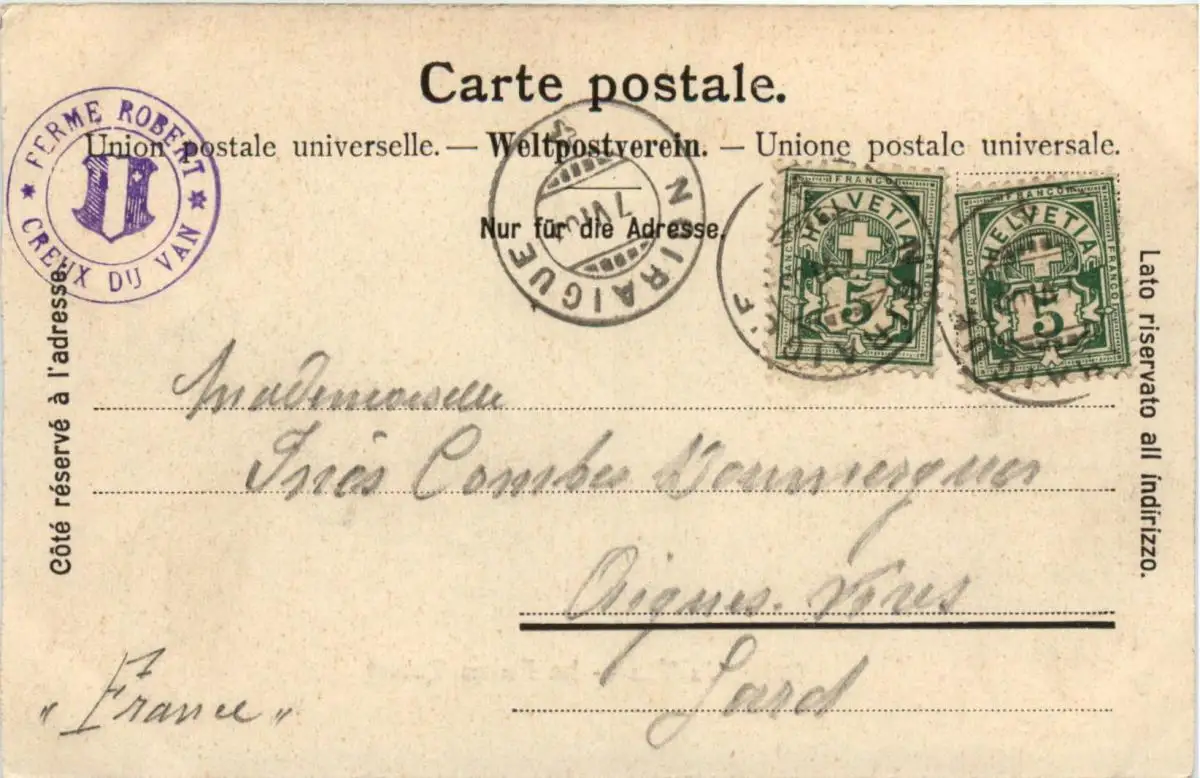 Carte postale.
Union postale universelle. — Weltpostverein. — Unione postale universale.
Nur für die Adresse.
FERME ROBERT
CREUX DU VAN
NOIRAIGUE
7 VI
FRANCO
HELVETIA
FRANCO
FRANCO
5
FRANCO
HELVETIA
FRANCO
FRANCO
5
Côté réservé à l'adresse.
Lato riservato all indirizzo.
Mademoiselle
Inès Combes Doumergues
Aigues-Vives
Gard
"France"